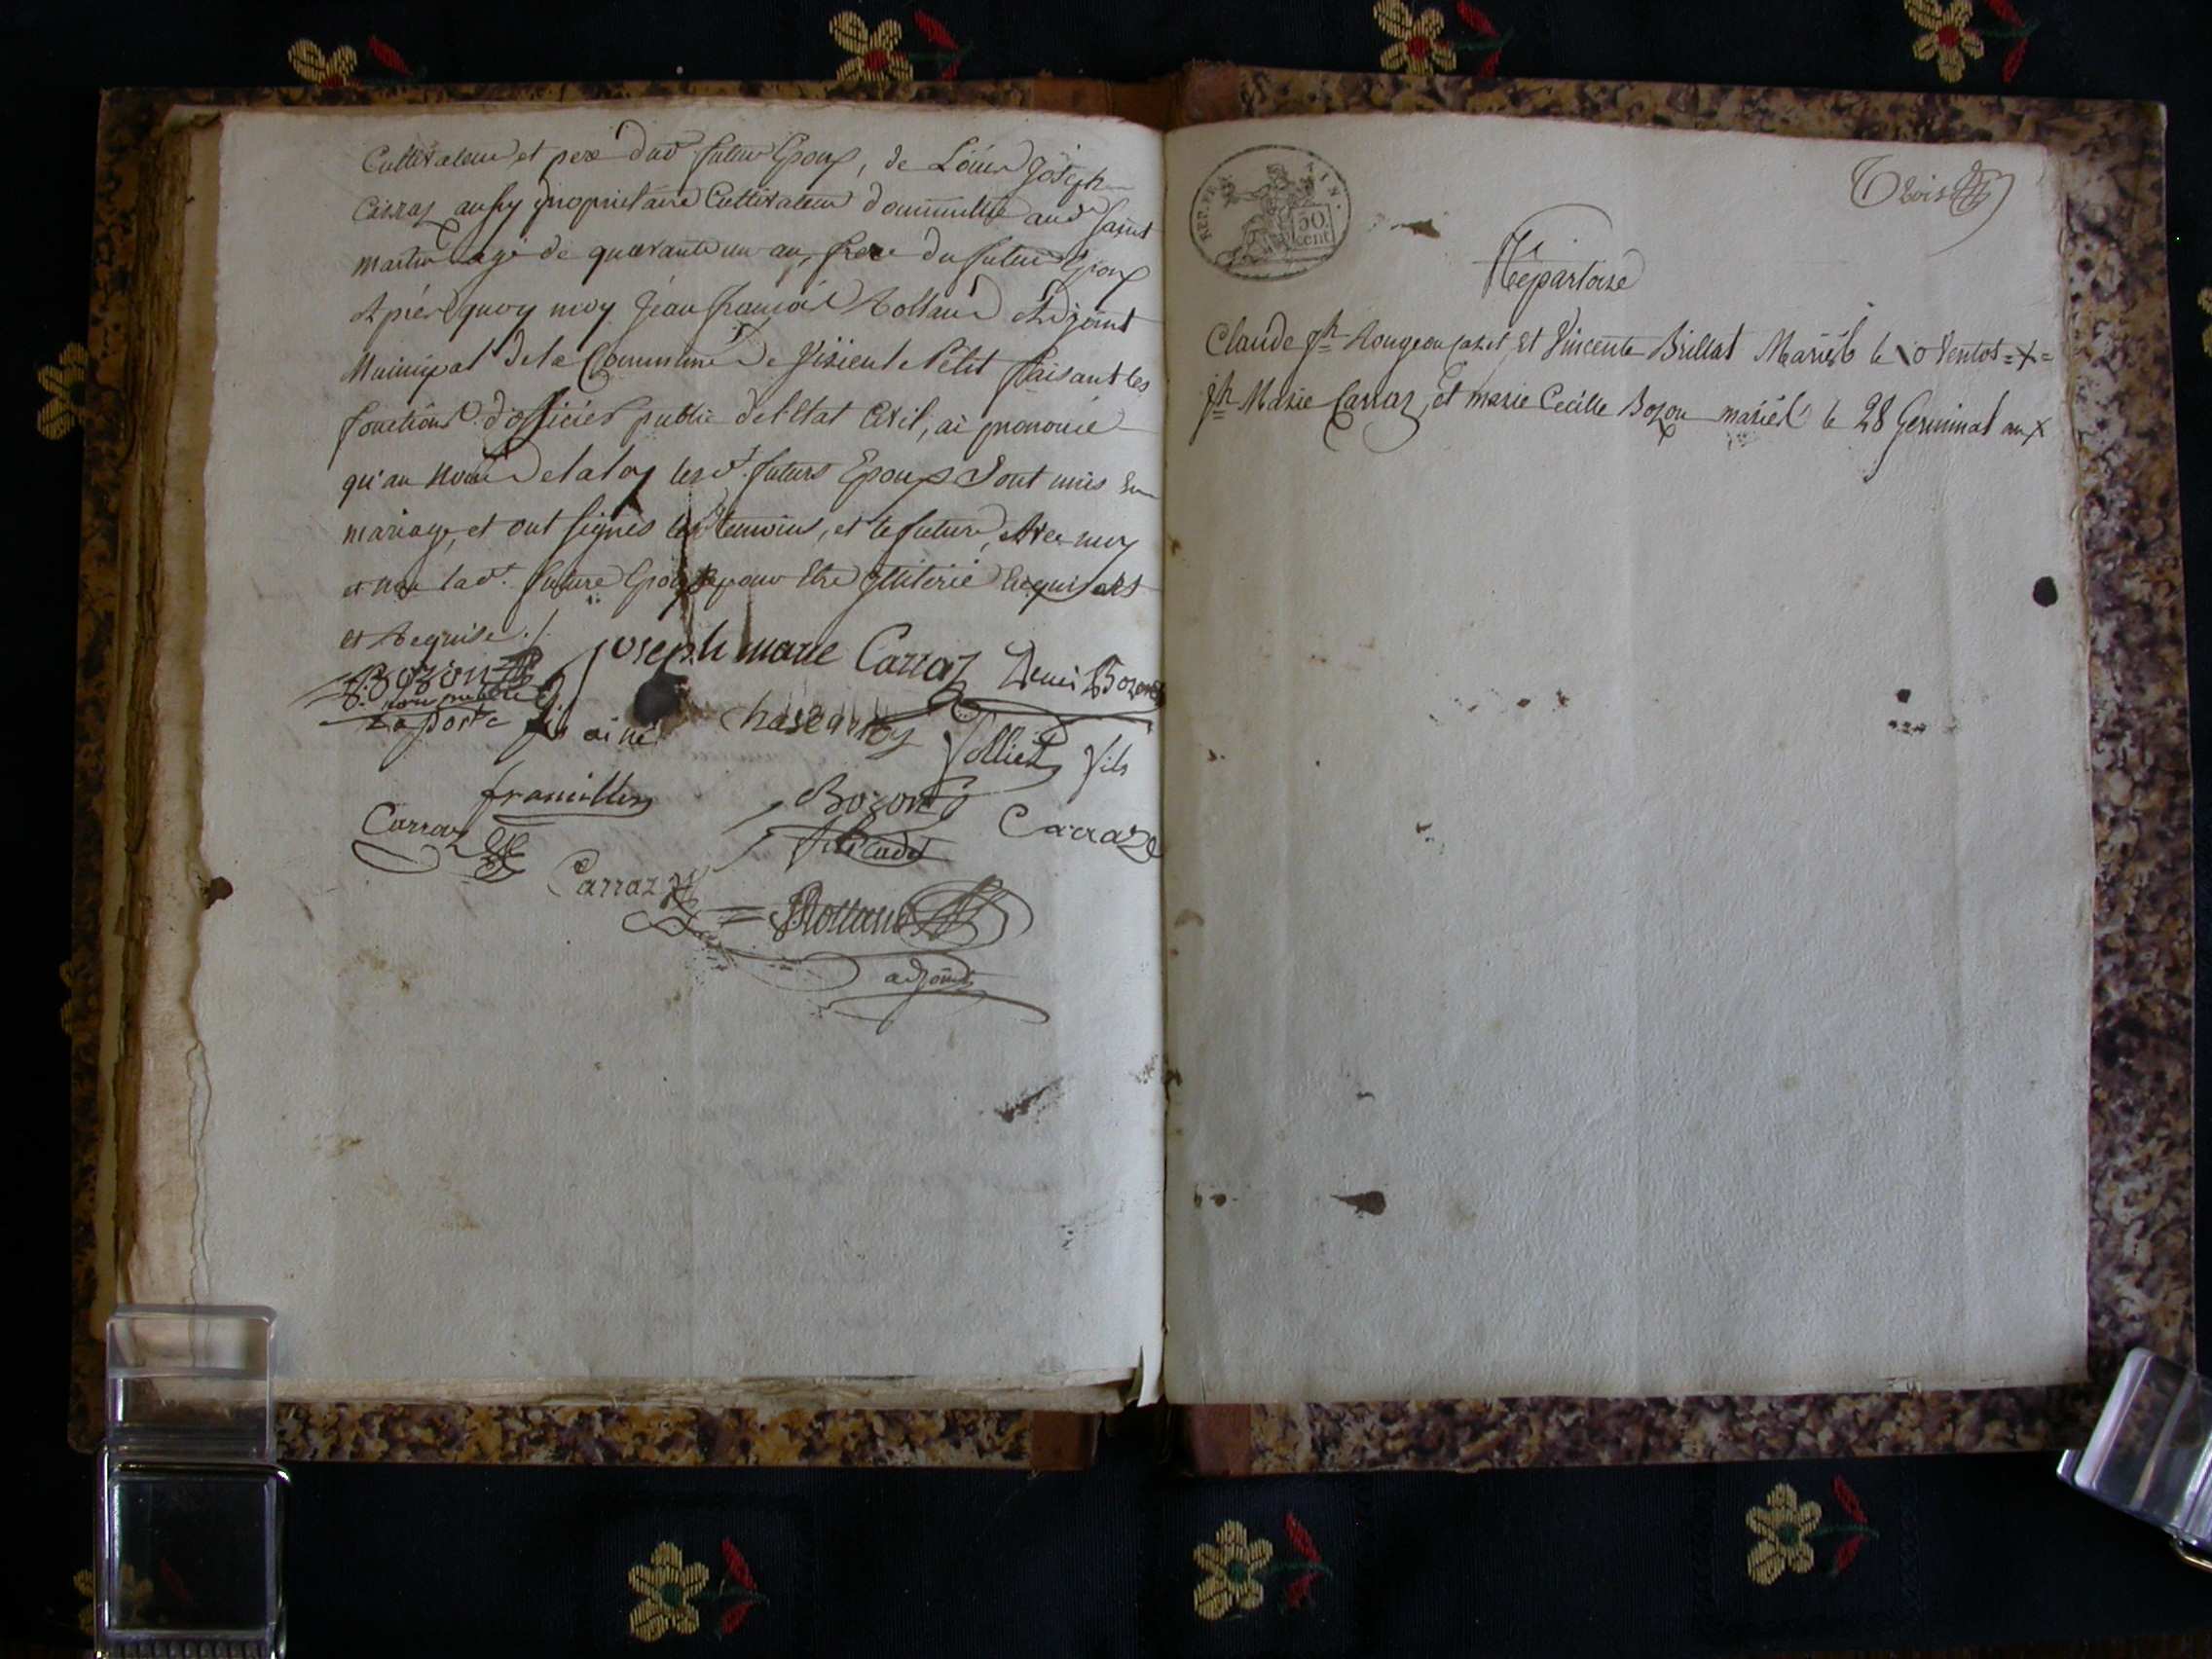 Cultivateur et pere dud futur Epoux, de Louis Joseph
Carraz aussy proprietaire Cultivateur domicillié aud Saint
Martin agé de quarante un an, frere du futur Epoux
Aprés quoy moy Jean françois Rolland Adjoint
Municipal de la Commune de Virieu le Petit faisant les
fonctions d'officier public de l'Etat Civil, ai prononcé
qu'au nom de la loy lesd. futurs Epoux Sont unis En
mariage, et ont signés les temoins, et le futur, Avec moy
et non lad. future Epouse pour Etre illiterée Enquise
et Requise ./.
Bozon
joseph marie Carraz Denis Bozon
Laporte fils ainé
Volliet fils
Bozon
Carraz
Carraze
Carraz
Rolland
adjoint
REP. FRA. AIN.
50.
cent
Trois
Répartoire
Claude Jh Rougeou et Vincente Brillat Mariés le 10 Ventos = X =
Jh Marie Carraz, et marie Cecille Bozon mariés le 28 Germinal an X